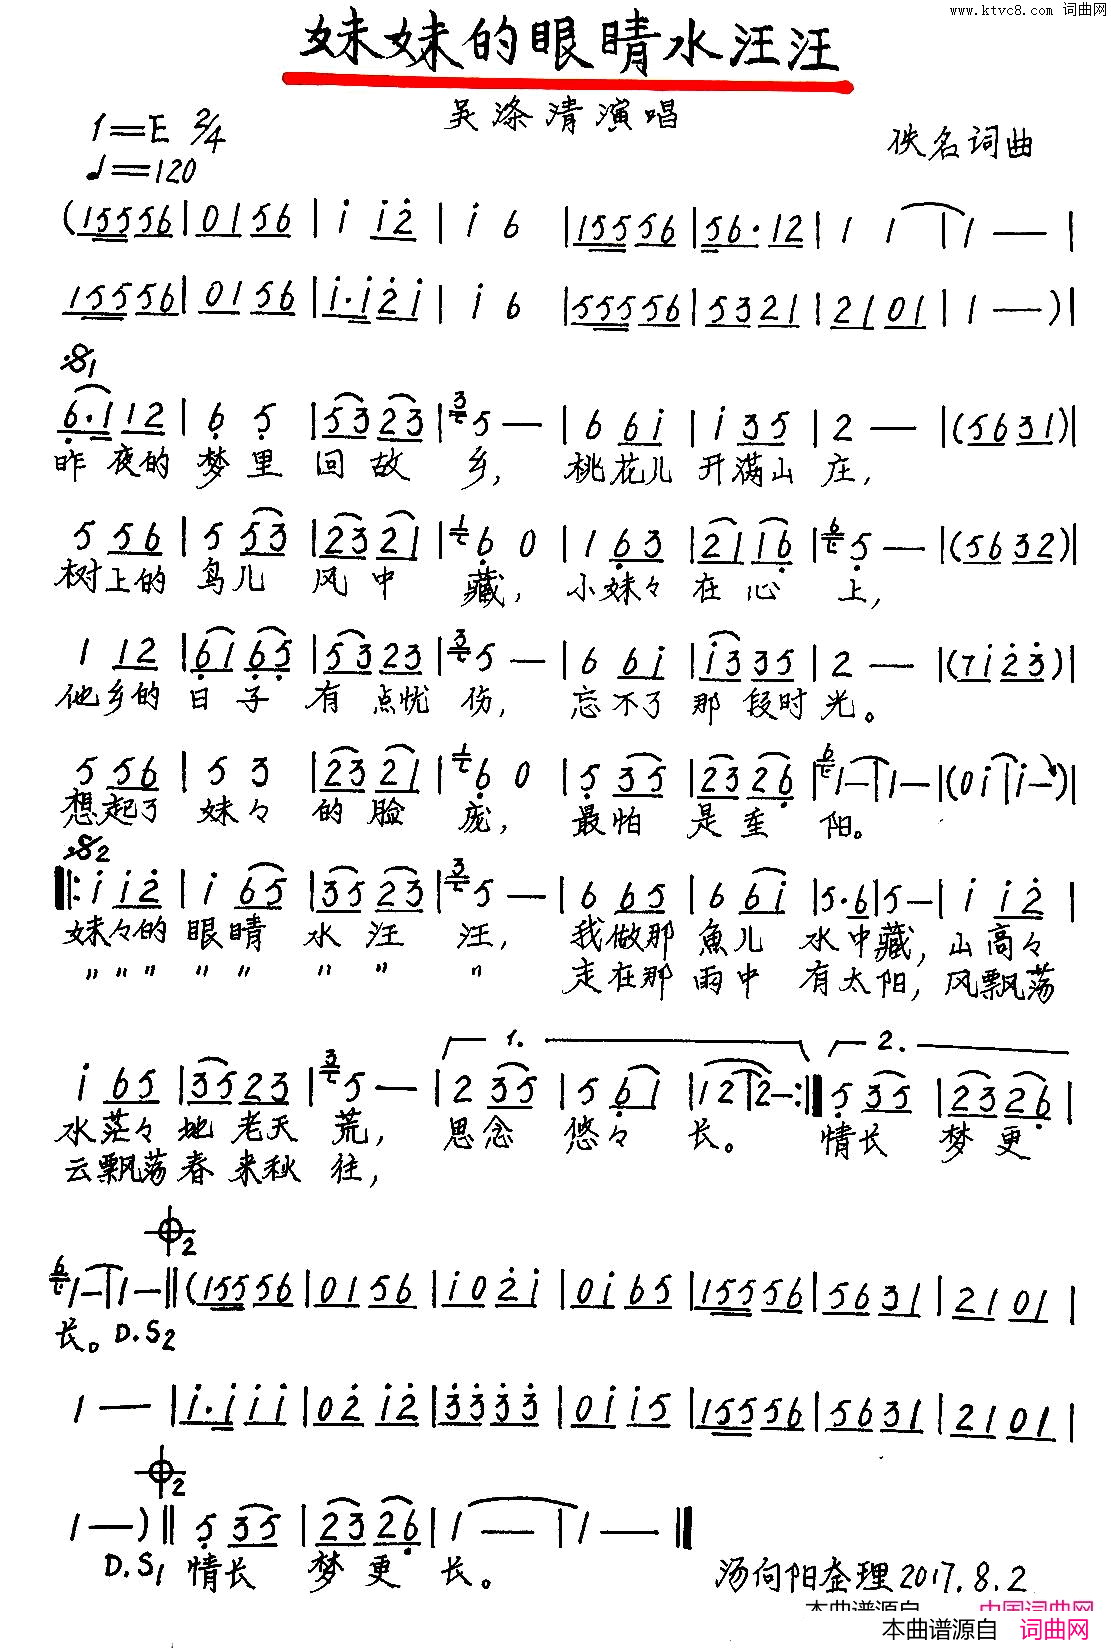 www.ktvc8.com 词曲网
妹妹的眼睛水汪汪
吴涤清演唱
1=E 2/4
佚名词曲
♩=120
(15556|0156|i i2|i 6|15556|56·12|1 1|1 —|
15556|0156|i·i2i|i 6|55556|5321|2101|1 —)|
𝄋1
6·112|6 5|3523|5 —|6 6i|i 35|2 —|(5631)|
昨夜的梦里回故乡,桃花儿开满山庄,
5 56|5 53|2321|6 0|1 63|2116|5 —|(5632)|
树上的鸟儿风中藏,小妹々在心上,
1 12|6165|3523|5 —|6 6i|i335|2 —|(7i23)|
他乡的日子有点忧伤,忘不了那段时光。
5 56|5 3|2321|6 0|5 35|2326|1—|1—|(0i|i—)|
想起了妹々的脸庞,最怕是重阳。
𝄋2
|:i i2|i 65|3523|5 —|6 65|6 6i|5·6|5—|i i2|
妹々的眼睛水汪汪,我做那魚儿水中藏,山高々
〃〃〃〃〃〃〃〃走在那雨中有太阳,风飘荡
1.
2.
i 65|3523|5 —|2 35|5 61|12|2—:|5 35|2326|
水茫々地老天荒,思念悠々长。情长梦更
云飘荡春来秋往,
𝄌2
1—|1—‖(15556|0156|i02i|0i65|15556|5631|2101|
长。D.S2
1 —|i·iii|02i2|3333|0ii5|15556|5631|2101|
𝄌2
1 —)‖5 35|2326|1 —|1 —‖
D.S1 情长梦更长。
汤向阳整理2017.8.2
本曲谱源自 中国词曲网
本曲谱源自 词曲网